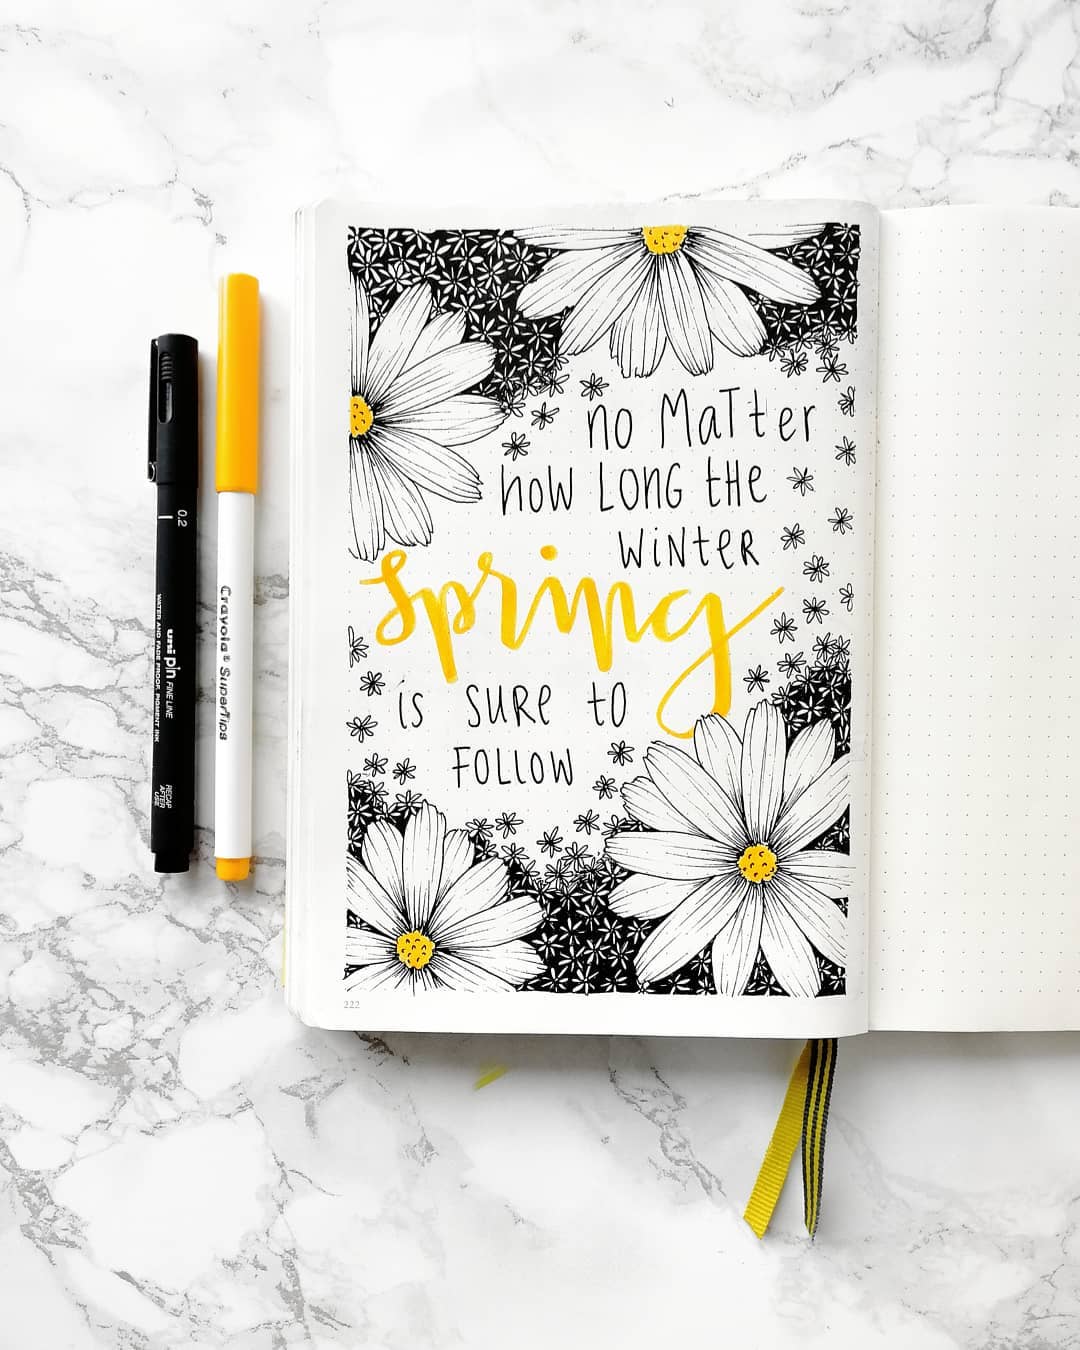 no MaTter
how LONG tHe
WiNteR
Spring
is SURe to
FOLLOW
222
0.2
uni pin FINE LINE
WATER AND FADE PROOF, PIGMENT INK
RECAP
AFTER
USE
Crayola® SuperTips